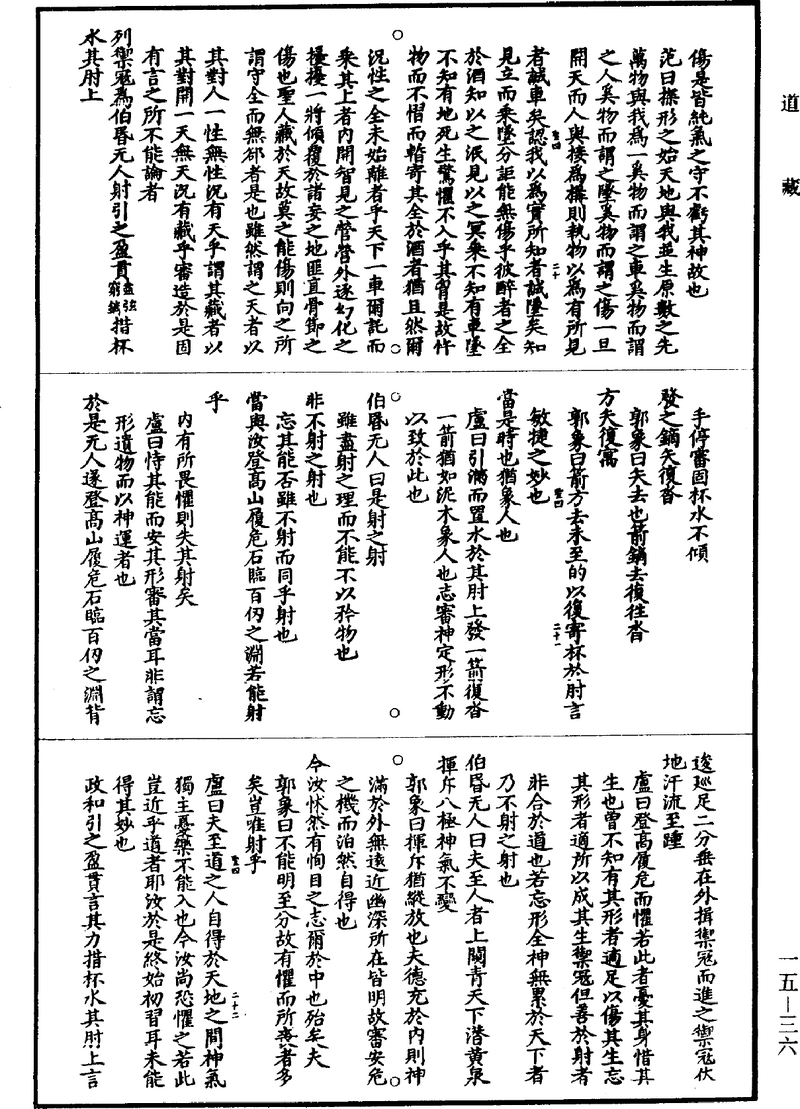 道藏
傷是皆純氣之守不虧其神故也
范曰探形之始天地與我並生原數之先
萬物與我為一奚物而謂之車奚物而謂
之人奚物而謂之墜奚物而謂之傷一旦
開天而人與接為構則執物以為有所見
者誠車矣認我以為實所知者誠墜矣知
見立而乘墜分詎能無傷乎彼醉者之全
於酒知以之泯見以之冥乘不知有車墜
不知有地死生驚懼不入乎其胷是故忤
物而不慴而暫寄其全於酒者猶且然爾
況性之全未始離者乎天下一車爾託而
乘其上者內開智見之營營外逐幻化之
擾擾一將傾覆於諸妄之地匪直骨節之
傷也聖人藏於天故莫之能傷則向之所
謂守全而無郤者是也雖然謂之天者以
其對人一性無性況有天乎謂其藏者以
其對開一天無天況有藏乎審造於是固
有言之所不能論者
列禦寇為伯昏无人射引之盈貫盡弦窮鏑措杯
水其肘上
手停審固杯水不傾
發之鏑矢復沓
郭象曰矢去也箭鏑去復往沓
方矢復寓
郭象曰箭方去未至的以復寄杯於肘言
敏捷之妙也
當是時也猶象人也
盧曰引滿而置水於其肘上發一箭復沓
一箭猶如泥木象人也志審神定形不動
以致於此也
伯昏无人曰是射之射
雖盡射之理而不能不以矜物也
非不射之射也
忘其能否雖不射而同乎射也
當與汝登高山履危石臨百仞之淵若能射
乎
內有所畏懼則失其射矣
盧曰恃其能而安其形審其當耳非謂忘
形遺物而以神運者也
於是无人遂登高山履危石臨百仞之淵背
逡巡足二分垂在外揖禦寇而進之禦寇伏
地汗流至踵
盧曰登高履危而懼若此者憂其身惜其
生也曾不知有其形者適足以傷其生忘
其形者適所以成其生禦寇但善於射者
非合於道也若忘形全神無累於天下者
乃不射之射也
伯昏无人曰夫至人者上闚青天下潛黃泉
揮斥八極神氣不變
郭象曰揮斥猶縱放也夫德充於內則神
滿於外無遠近幽深所在皆明故審安危
之機而泊然自得也
今汝怵然有恂目之志爾於中也殆矣夫
郭象曰不能明至分故有懼而所喪者多
矣豈唯射乎
盧曰夫至道之人自得於天地之間神氣
獨主憂樂不能入也今汝尚恐懼之若此
豈近乎道者耶汝於是終始初習耳未能
得其妙也
政和引之盈貫言其力措杯水其肘上言
一五—三六